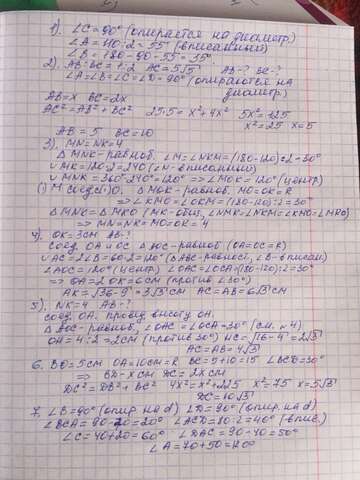 1). ∠C=90° (опирается на диаметр.)
∠A=110:2=55° (вписанный)
∠B=180-90-55=35°
2). AB:BC=1:2 AC=5√5 AB-? BC-?
∠A=∠B=∠C=∠D=90° (опираются на
диаметр.)
AB=x BC=2x
AC²=AB²+BC² 25·5=x²+4x² 5x²=125
x²=25 x=5
AB=5 BC=10
3). MN=NK=4
△MNK-равноб. ∠M=∠NKM=(180-120):2=30°
∪MK=120·2=240
∪MNK=360-240=120° => ∠MOK=120° (центр)
△MOK-равноб. MO=OK=R
=> ∠KMO=∠OKM=(180-120):2=30°
△MNK=△MKO (MK-общ, ∠NMK=∠NKM=∠KMO=
=> MN=NK=MO=OK=4
4). OK=3см AB-?
Соед. OA и OC △AOC-равноб (OA=OC=R)
∪AC=2∠B=60·2=120° (△ABC-равнос, ∠B-вписан)
∠AOC=120° (центр) ∠OAC=∠OCA=(180-120):2=30°
=> OA=2OK=6см (против ∠30°)
AK=√36-9=3√3см AC=AB=6√3см
5). NK=4 AB-?
соед OA. провед высоту OH.
△AOC-равноб, ∠OAC=∠OCA=30° (см. н4)
OH=4:2=2см (против 30°) HC=√16-4=2√3
AC=AB=4√3
6. BD=5см OA=10см=R BC=5+10=15 ∠BCD=30°
=> BD=xсм DC=2xсм
DC²=DB²+BC² 4x²=x²+225 x²=75 x=5√3
DC=10√3
7. ∠B=90° (опир. на d) ∠D=90° (опир на d)
∠BCA=90-70=20° ∠ACD=80:2=40° (впис.)
∠C=40+20=60° ∠DAC=90-40=50°
∠A=70+50=120°